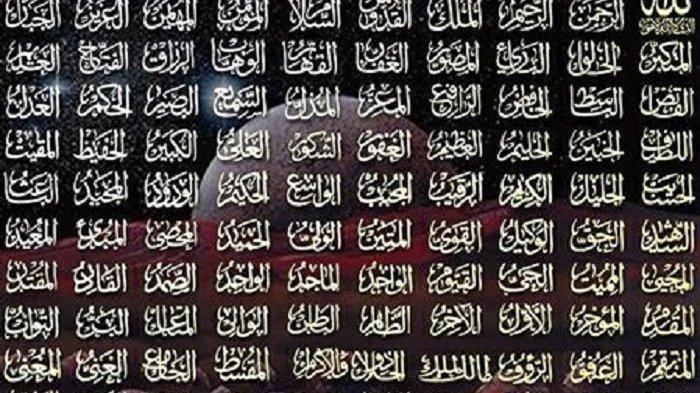 الله الرحمن الرحيم الملك القدوس السلام المؤمن المهيمن العزيز الجبار
المتكبر الخالق البارئ المصور الغفار القهار الوهاب الرزاق الفتاح العليم
القابض الباسط الخافض الرافع المعز المذل السميع البصير الحكم العدل
اللطيف الخبير الحليم العظيم الغفور الشكور العلي الكبير الحفيظ المقيت
الحسيب الجليل الكريم الرقيب المجيب الواسع الحكيم الودود المجيد الباعث
الشهيد الحق الوكيل القوي المتين الولي الحميد المحصي المبدئ المعيد
المحيي المميت الحي القيوم الواجد الماجد الواحد الصمد القادر المقتدر
المقدم المؤخر الأول الآخر الظاهر الباطن الوالي المتعالي البر التواب
المنتقم العفو الرؤوف مالك الملك ذو الجلال والإكرام المقسط الجامع الغني المغني